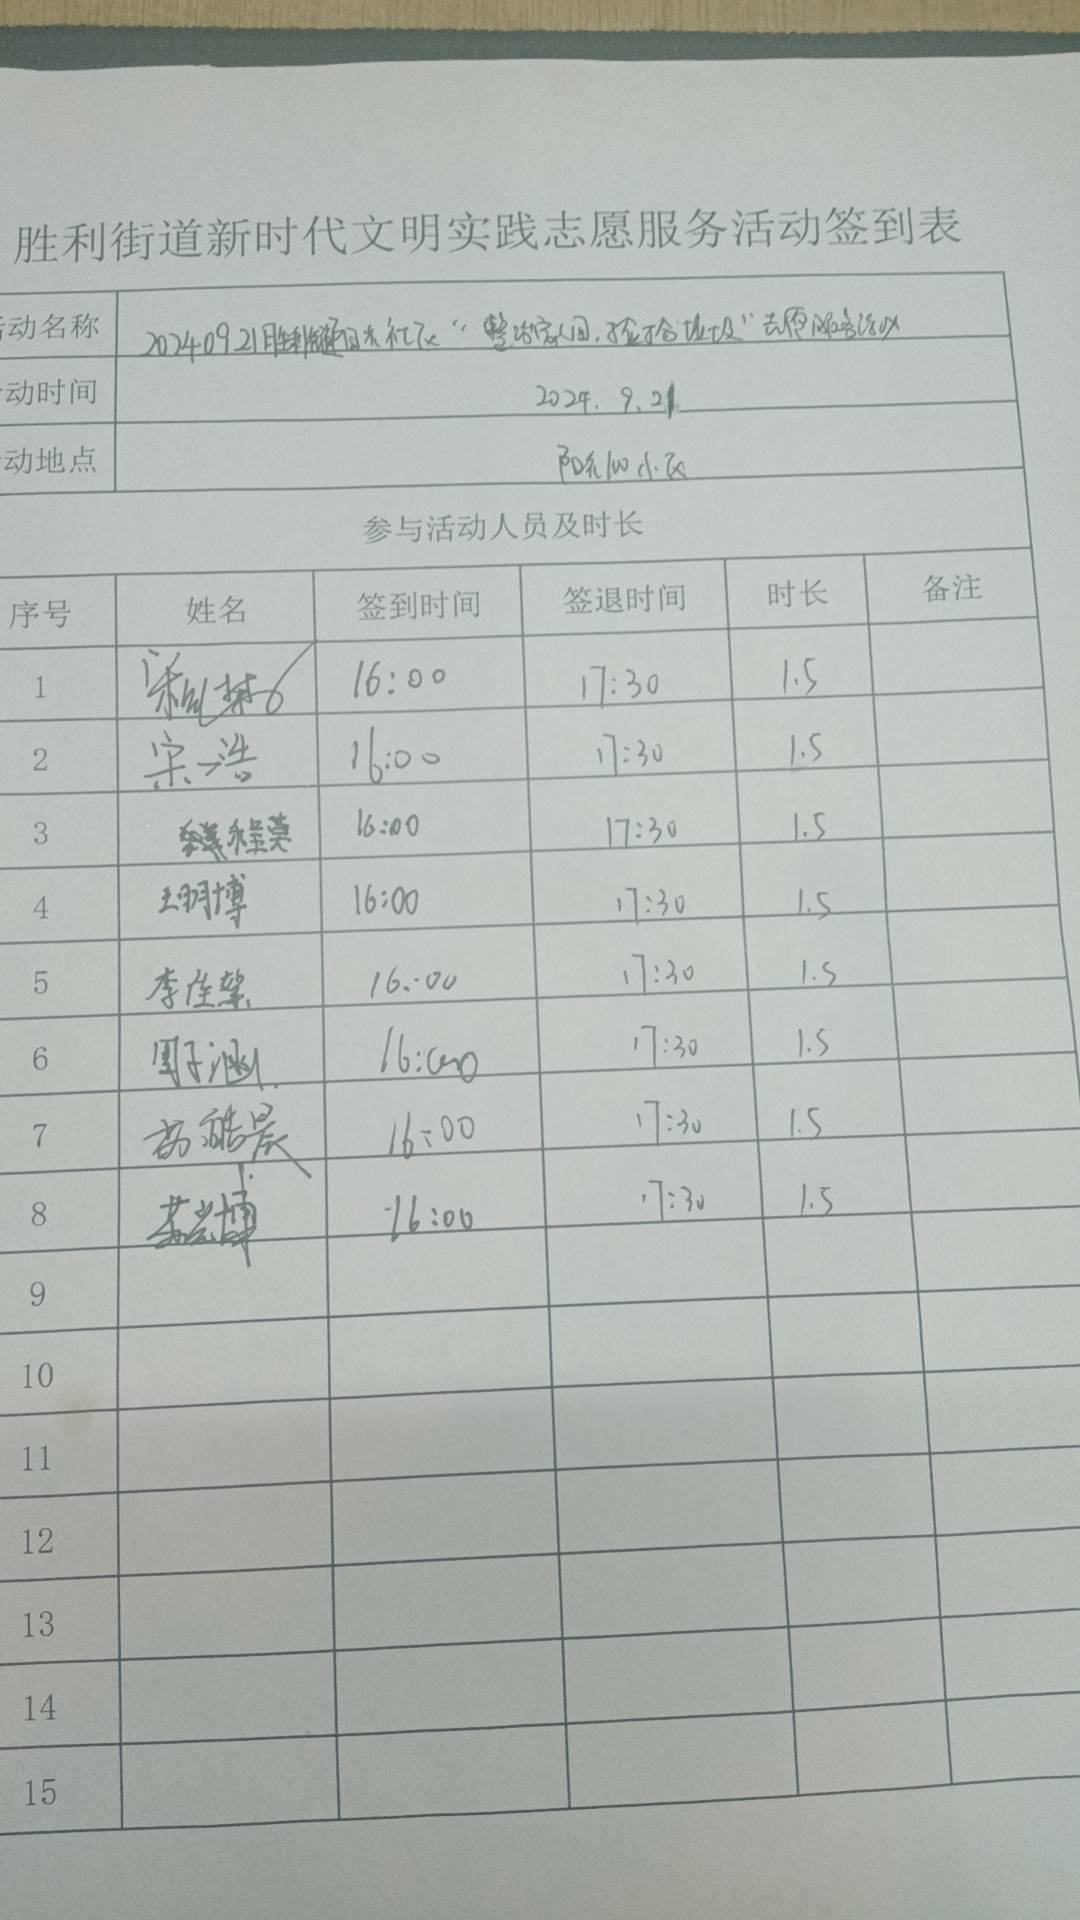 胜利街道新时代文明实践志愿服务活动签到表
活动名称 20240921胜利街道阳光社区“整治家园,捡拾垃圾”志愿服务活动
活动时间 2024.9.21
活动地点 小区
参与活动人员及时长
序号 姓名 签到时间 签退时间 时长 备注
1 16:00 17:30 1.5
2 宋一浩 16:00 17:30 1.5
3 16:00 17:30 1.5
4 王明博 16:00 17:30 1.5
5 李佳 16:00 17:30 1.5
6 周子涵 16:00 17:30 1.5
7 杨皓晨 16:00 17:30 1.5
8 博 16:00 17:30 1.5
9
10
11
12
13
14
15